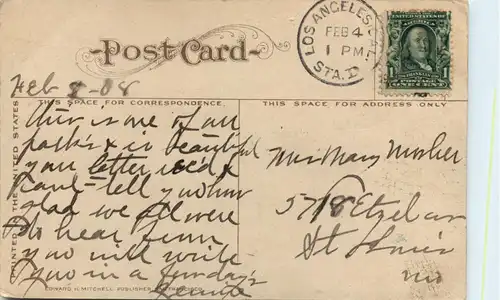 Post Card
LOS ANGELES, CAL.
FEB 4
1 PM
STA. D
UNITED STATES
FRANKLIN
1 POSTAGE 1
ONE CENT
Feb 08
THIS SPACE FOR CORRESPONDENCE.
THIS SPACE FOR ADDRESS ONLY
PRINTED IN THE UNITED STATES
This is one of our
park's & is beautiful
your letter rec'd &
can't tell you how
glad we all were
to hear from
you will write
you in a few day's
Mrs Mary Mosher
5718 Etzel av
St Louis
Mo
EDWARD H. MITCHELL, PUBLISHER, SAN FRANCISCO.